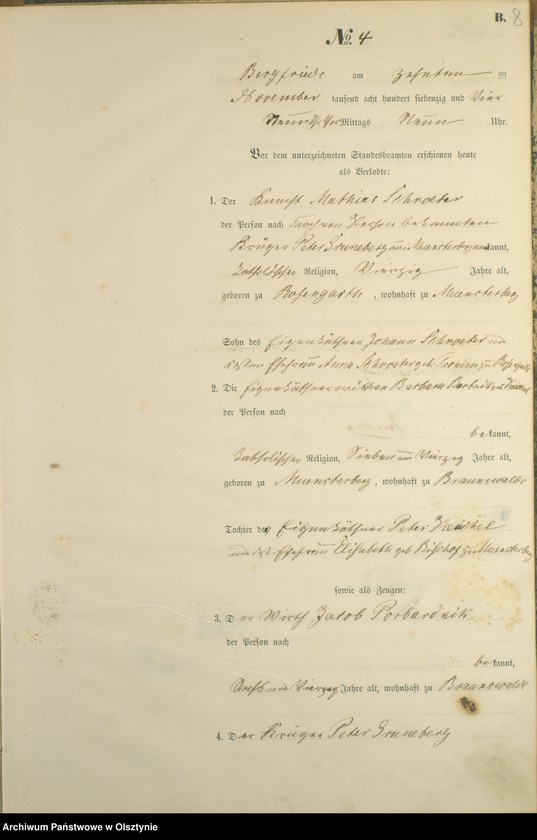 B. 8
No. 4
Bergfriede am zehnten
November tausend acht hundert siebenzig und Vier
Mittags Neun Uhr.
Vor dem unterzeichneten Standesbeamten erschienen heute
als Verlobte:
1. Der Mathias Schroeter
der Person nach
Krüger Peter Gruneberg Muensterberg kannt,
katholischer Religion, Vierzig Jahre alt,
geboren zu Rosengarth, wohnhaft zu Muensterberg
Sohn des Eigenkäthner Johann Schroeter und
Ehefrau Anna Schroeter geb. zu
2. Die Eigenkäthnerwittwe Barbara
der Person nach
bekannt,
katholischer Religion, Sieben und Vierzig Jahre alt,
geboren zu Muensterberg, wohnhaft zu Braunswalde
Tochter des Eigenkäthner Peter
Ehefrau Elisabeth geb Bischof zu Muensterberg
sowie als Zeugen:
3. Der Wirth Jacob Porbardnik
der Person nach
bekannt,
Sechs und Vierzig Jahre alt, wohnhaft zu Braunswalde
4. Der Krüger Peter Gruneberg
Archiwum Państwowe w Olsztynie